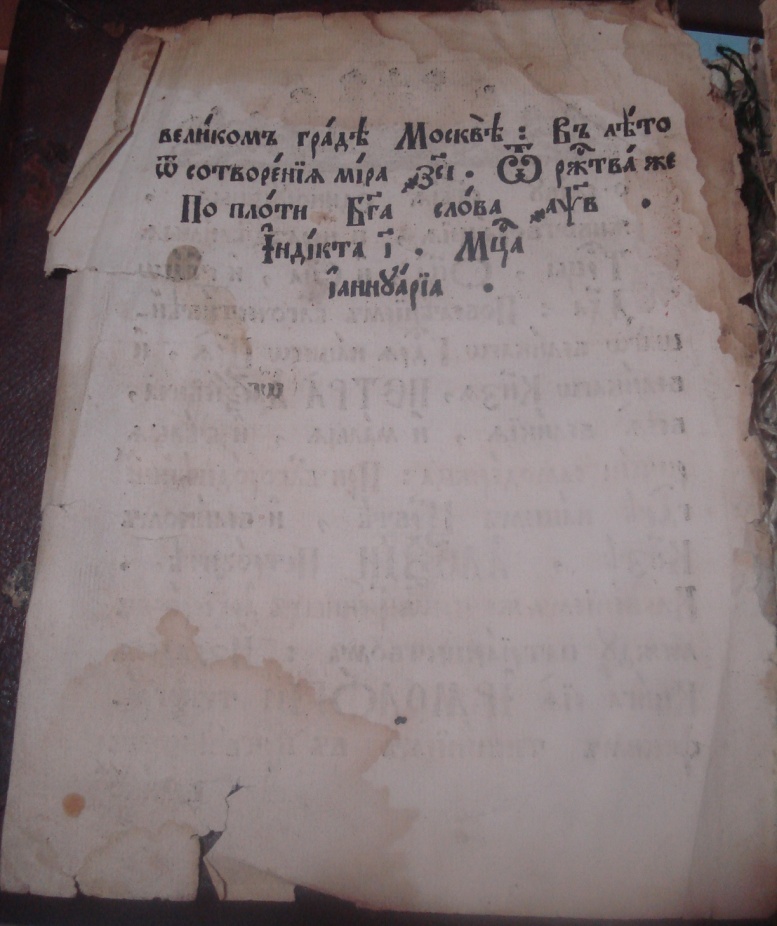 вели́комъ гра́дѣ Москвѣ̀ : Въ лѣ́то
ѿ сотворе́нїѧ мі́ра ҂зс҃і . Ѿ рж҃тва́ же
По пло́ти Бг҃а сло́ва ҂аѱ҃в .
І҆нді́кта і҃ . Мц҃а
і҆аннꙋа́рїа .